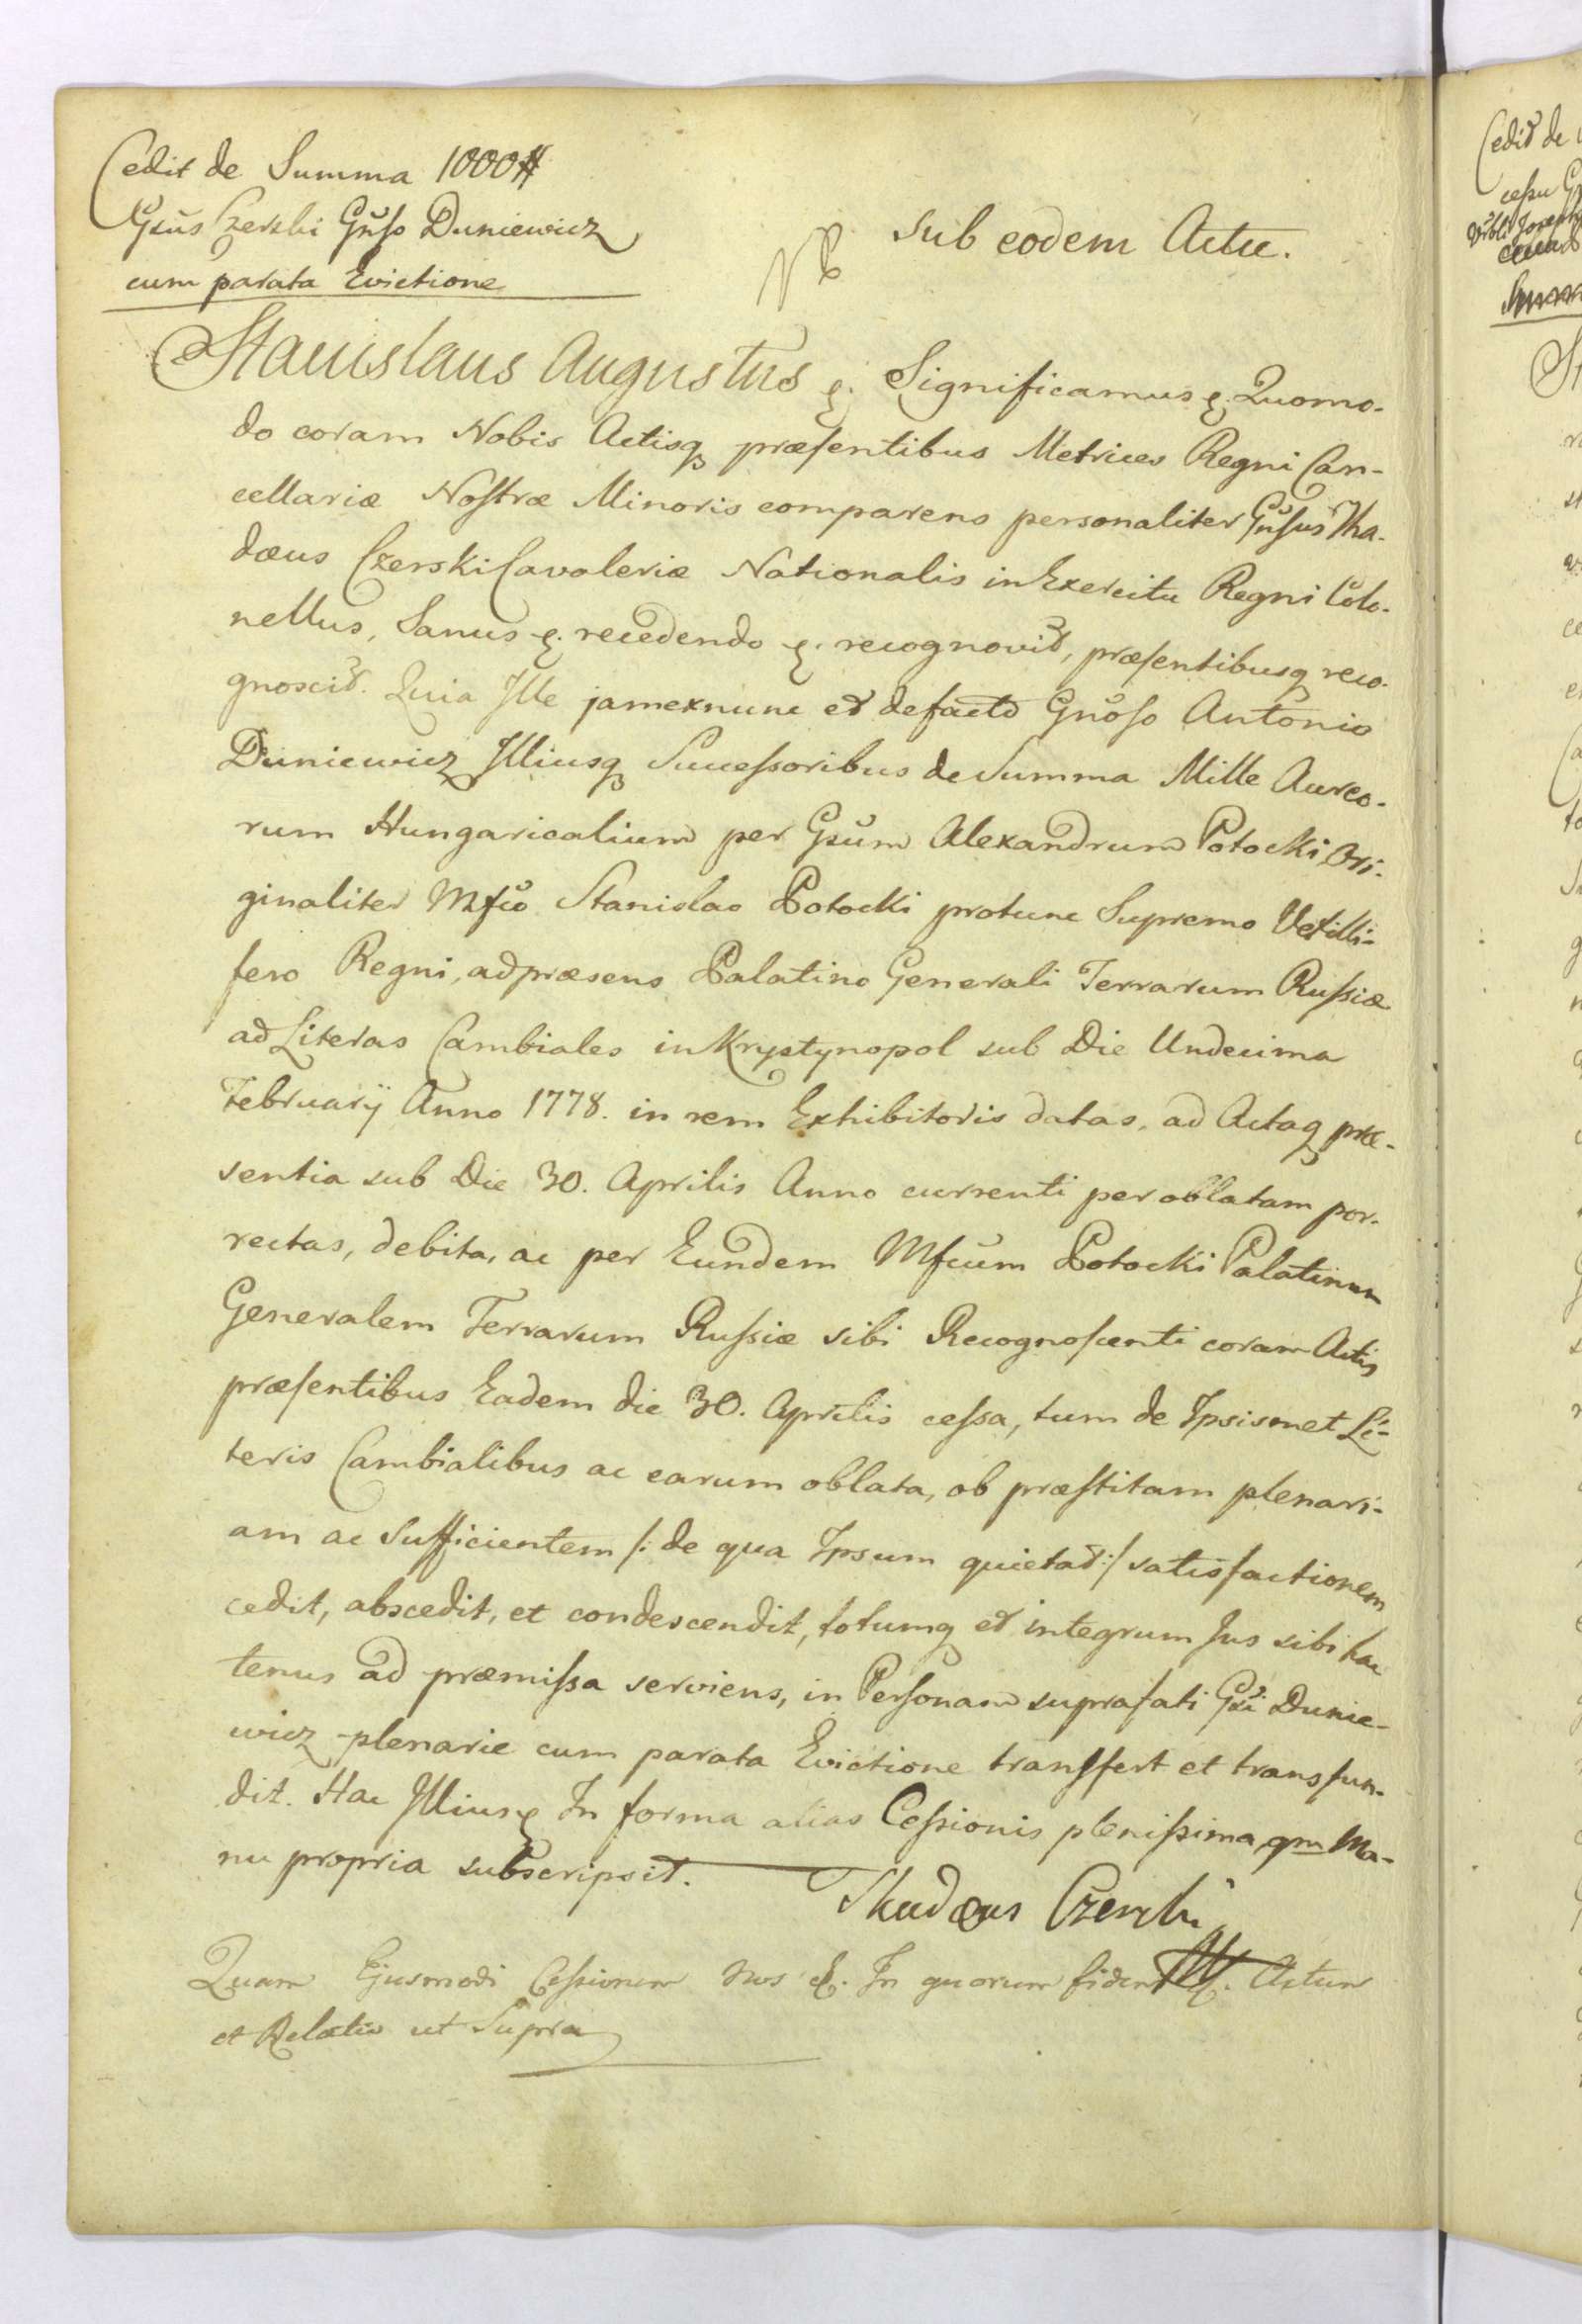 Cedit de Summa 1000#
Gsus Czerski Gnso Duniewicz
cum parata Evictione
Sub eodem Actu.
Stanislaus Augustus &. Significamus &. Quomo-
do coram Nobis Actisq præsentibus Metrices Regni Can-
cellariæ Nostræ Minoris comparens personaliter Gnsus Tha-
dæus Czerski Cavaleriæ Nationalis in Exercitu Regni Colo-
nellus, Sanus &. recedendo &. recognovit, præsentibusq reco-
gnoscit. Quia Ille jamexnunc et defacto Gnoso Antonio
Duniewicz Illiusq Successoribus de Summa Mille Aureo-
rum Hungaricalium per Gsum Alexandrum Potocki Ori-
ginaliter Mfco Stanislao Potocki protunc Supremo Vexilli-
fero Regni, adpræsens Palatino Generali Terrarum Russiæ
ad Literas Cambiales in Krystynopol sub Die Undecima
Februarij Anno 1778. in rem Exhibitoris datas, ad Actaq præ-
sentia sub Die 30. Aprilis Anno currenti per oblatam por-
rectas, debita, ac per Eundem Mfcum Potocki Palatinum
Generalem Terrarum Russiæ sibi Recognoscenti coram Actis
præsentibus Eadem die 30. Aprilis cessa, tum de Ipsismet Li-
teris Cambialibus ac earum oblata, ob præstitam plenari-
am ac Sufficientem /: de qua Ipsum quietat :/ satisfactionem
cedit, abscedit, et condescendit, totumq et integrum Jus sibi hac
tenus ad præmissa serviens, in Personam suprafati Gsi Dunie-
wicz plenarie cum parata Evictione transfert et transfun-
dit. Hac Illius &. In forma alias Cessionis plenissima, qm Ma-
nu propria subscripsit.
Thadæus Czerski
Quam Ejusmodi Cessionem Nos &. In quorum fidem &. Actum
et Relatio ut Supra